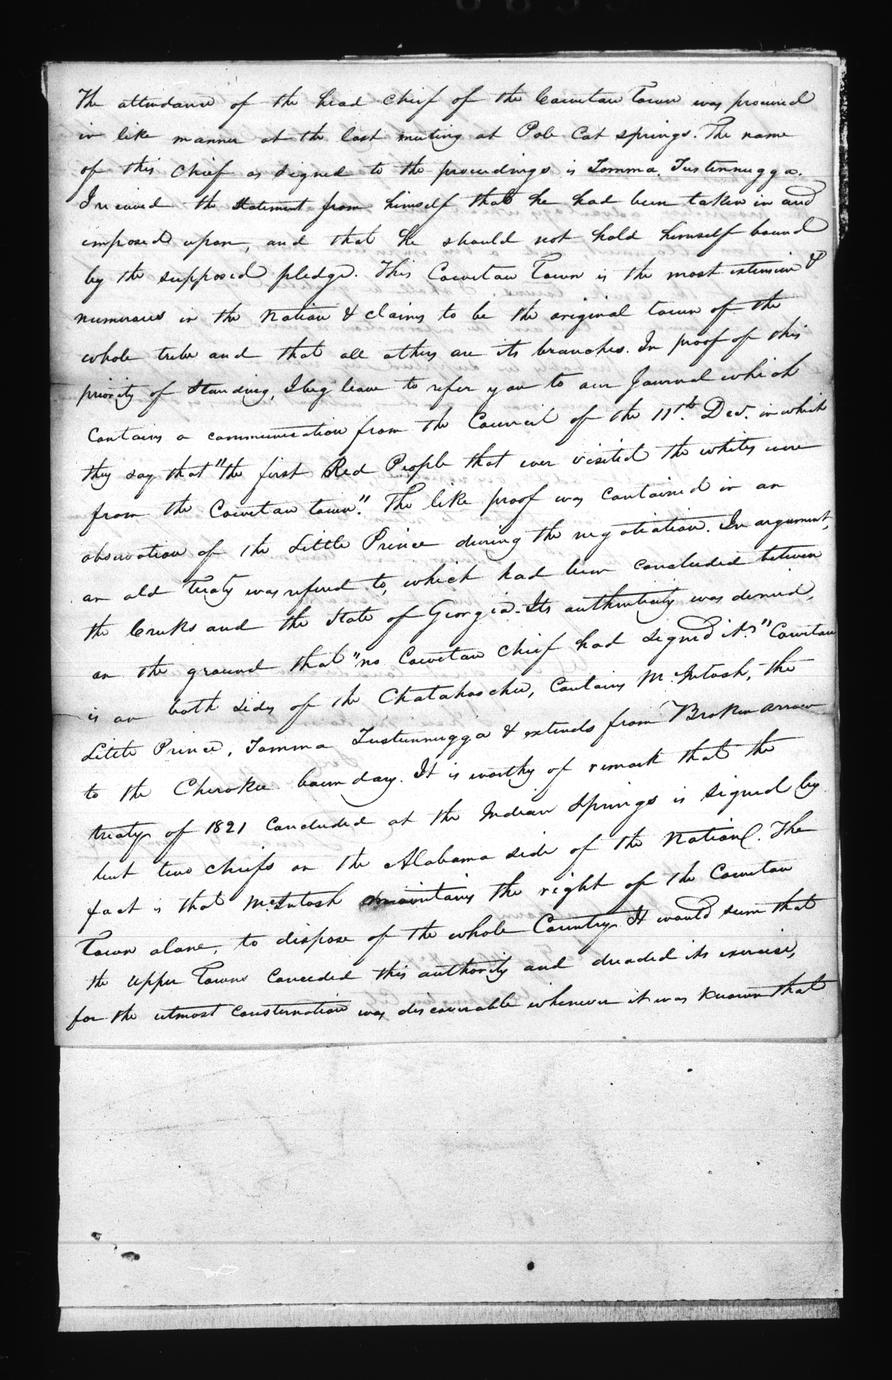 The attendance of the head chief of the Cowetau Town was procured
in like manner at the last meeting at Pole Cat springs. The name
of this Chief as signed to the proceedings is Tomma Tustennugga.
I received the statement from himself that he had been taken in and
imposed upon, and that he should not hold himself bound
by the supposed pledge. This Cowetau Town is the most extensive &
numerous in the Nation & claims to be the original town of the
whole tribe and that all others are its branches. In proof of this
priority of standing, I beg leave to refer you to our Journal which
contains a communication from the Council of the 11th. Decr. in which
they say that "the first Red People that ever visited the whites were
from the Cowetau town". The like proof was contained in an
observation of the Little Prince during the negotiation. In argument,
an old Treaty was refered to, which had been concluded between
the Creeks and the State of Georgia. Its authenticity was denied,
on the ground that "no Cowetau Chief had signed it." Cowetau
is on both sides of the Chatahoochie, contains McIntosh, the
Little Prince, Tomma Tustennugga & extends from Broken arrow
to the Cherokee boundary. It is worthy of remark that the
treaty of 1821 concluded at the Indian Springs is signed by
but two chiefs on the Alabama side of the Nation. The
fact is that McIntosh maintains the right of the Cowetau
Town alone, to dispose of the whole Country. It would seem that
the upper Towns conceded this authority and dreaded its exercise,
for the utmost consternation was discoverable whenever it was known that